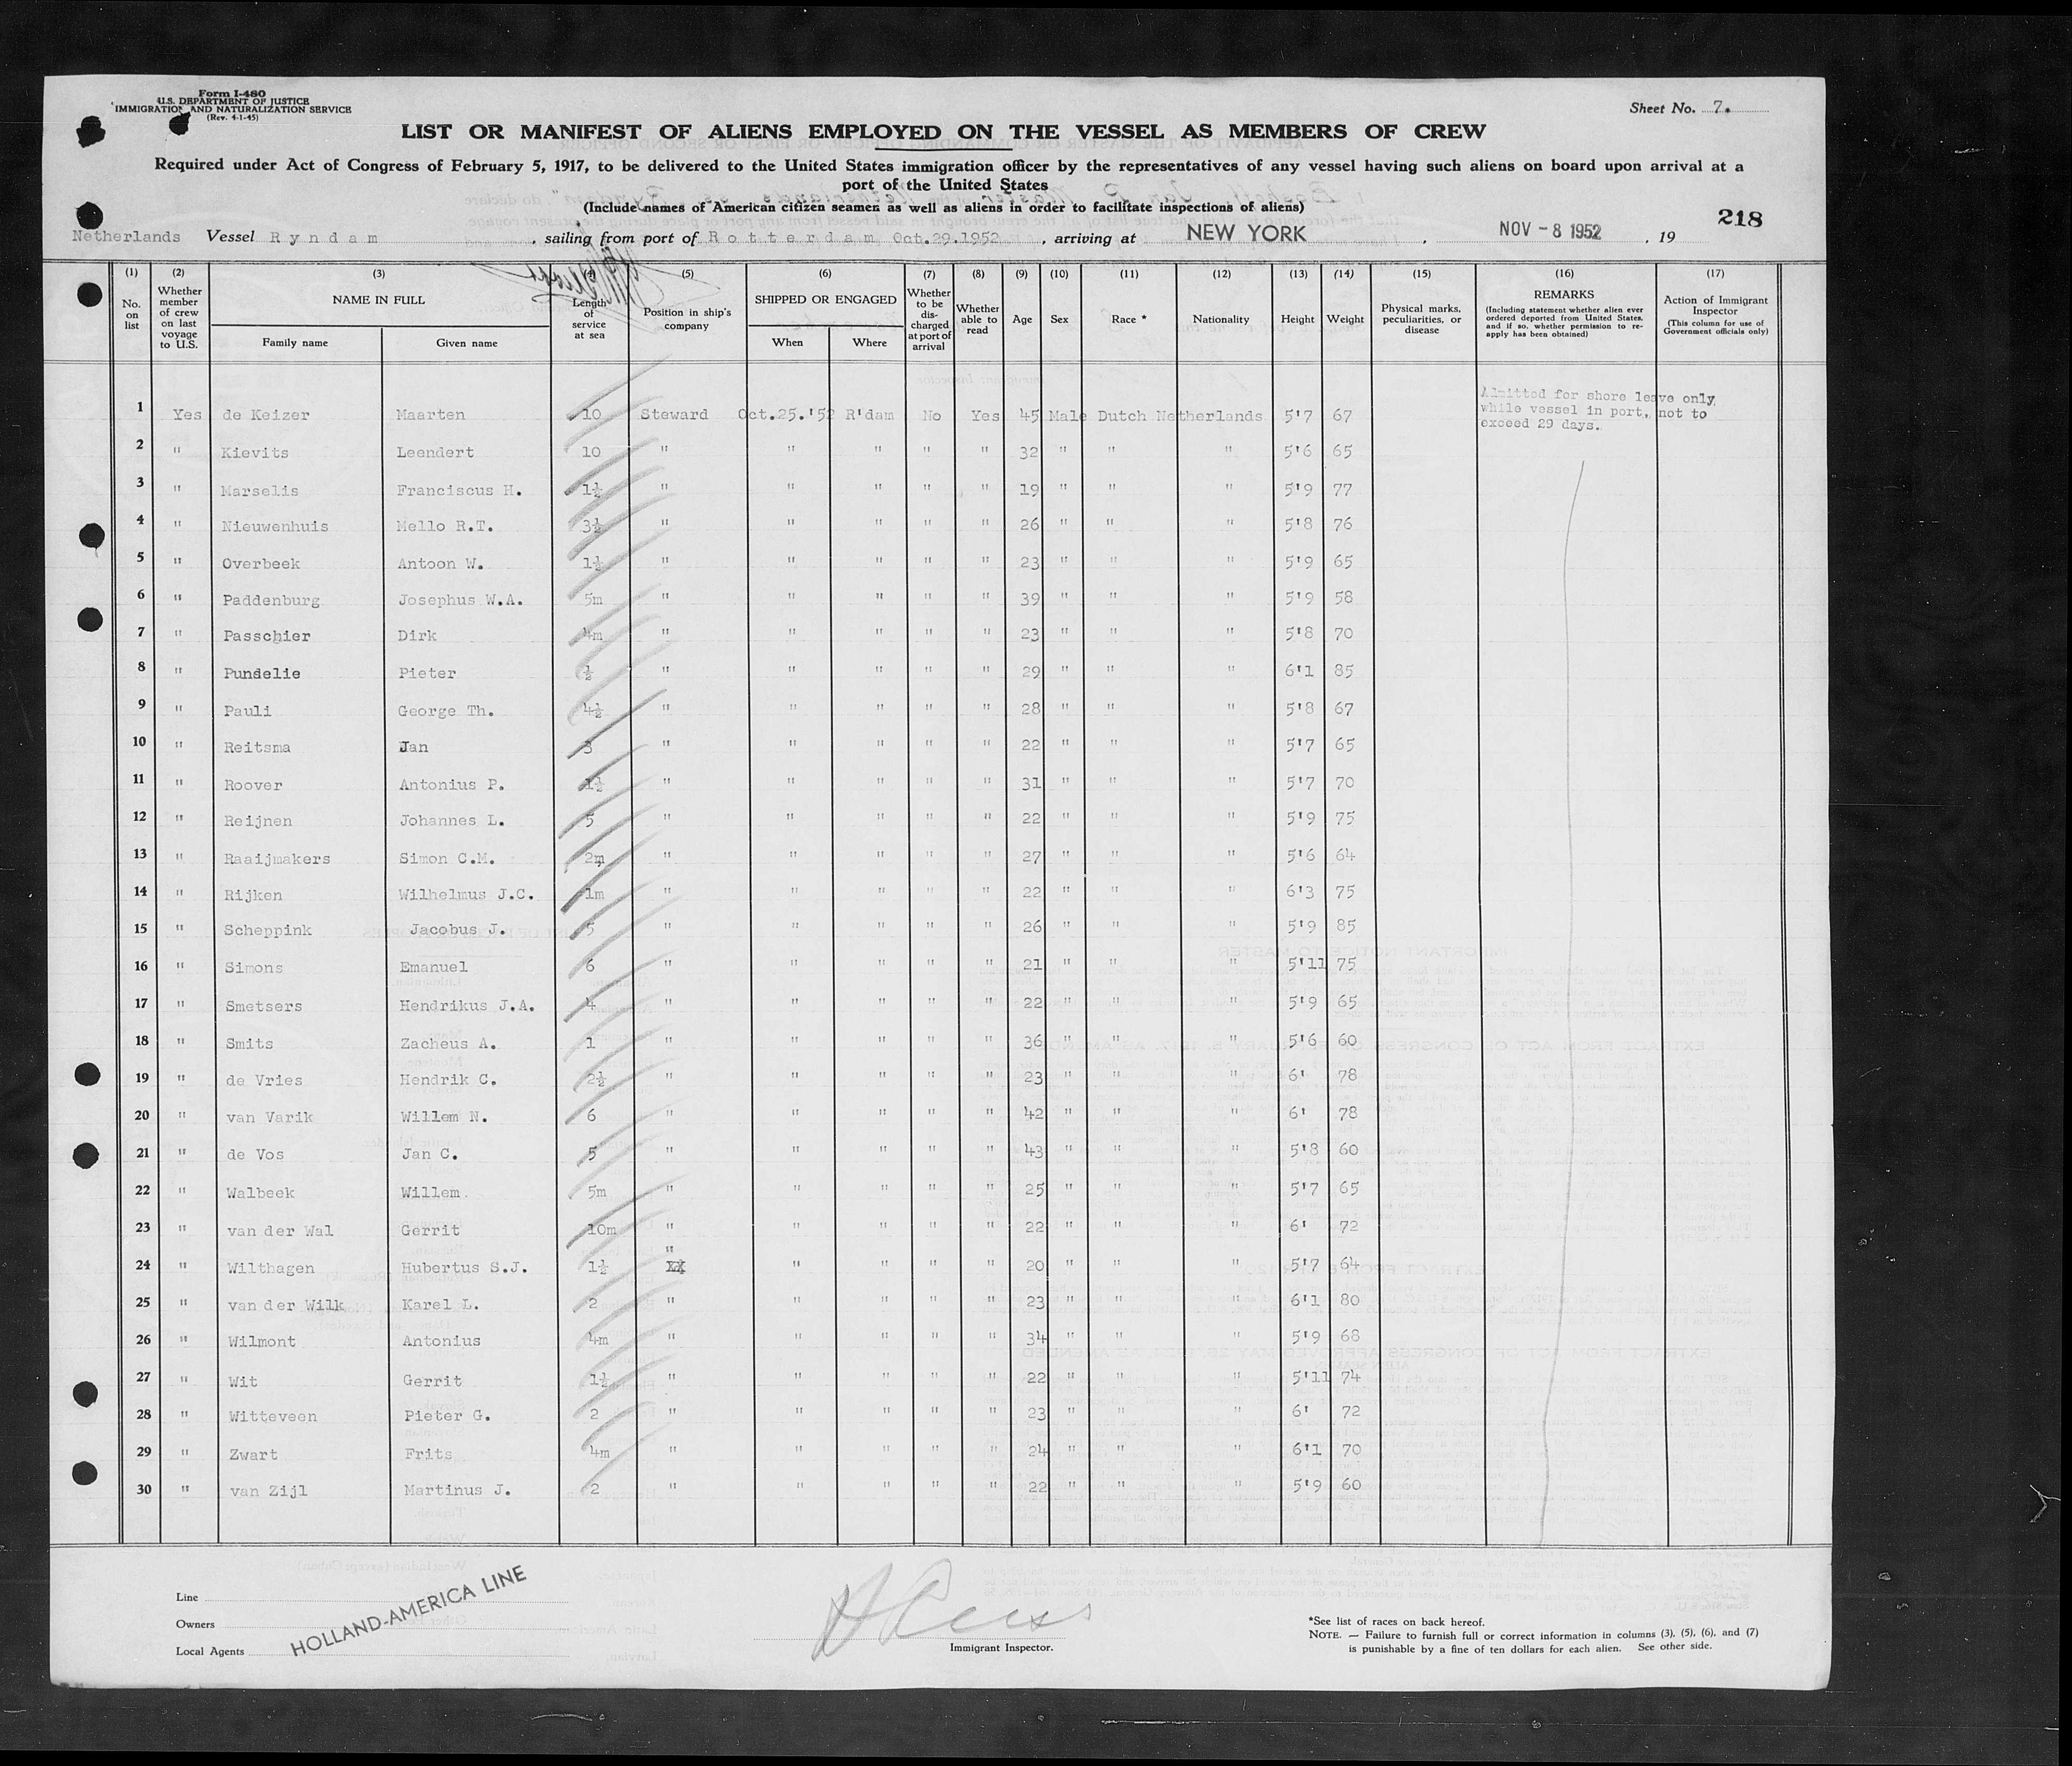 Form I-480
U.S. DEPARTMENT OF JUSTICE
IMMIGRATION AND NATURALIZATION SERVICE
(Rev. 4-1-45)
Sheet No. 7.
LIST OR MANIFEST OF ALIENS EMPLOYED ON THE VESSEL AS MEMBERS OF CREW
Required under Act of Congress of February 5, 1917, to be delivered to the United States immigration officer by the representatives of any vessel having such aliens on board upon arrival at a
port of the United States
(Include names of American citizen seamen as well as aliens in order to facilitate inspections of aliens)
218
Netherlands Vessel Ryndam, sailing from port of Rotterdam Oct.29.1952, arriving at NEW YORK, NOV - 8 1952, 19
(1) (2) (3) (4) (5) (6) (7) (8) (9) (10) (11) (12) (13) (14) (15) (16) (17)
No. on list
Whether member of crew on last voyage to U.S.
NAME IN FULL
Family name
Given name
Length of service at sea
Position in ship's company
SHIPPED OR ENGAGED
When
Where
Whether to be discharged at port of arrival
Whether able to read
Age
Sex
Race *
Nationality
Height
Weight
Physical marks, peculiarities, or disease
REMARKS
(Including statement whether alien ever ordered deported from United States, and if so, whether permission to re-apply has been obtained)
Action of Immigrant Inspector
(This column for use of Government officials only)
Admitted for shore leave only
while vessel in port, not to
exceed 29 days.
1 Yes de Keizer Maarten 10 Steward Oct.25.'52 R'dam No Yes 45 Male Dutch Netherlands 5'7 67
2 " Kievits Leendert 10 " " " " " 32 " " " 5'6 65
3 " Marselis Franciscus H. 1½ " " " " " 19 " " " 5'9 77
4 " Nieuwenhuis Mello R.T. 3½ " " " " " 26 " " " 5'8 76
5 " Overbeek Antoon W. 1½ " " " " " 23 " " " 5'9 65
6 " Paddenburg Josephus W.A. 5m " " " " " 39 " " " 5'9 58
7 " Passchier Dirk 4m " " " " " 23 " " " 5'8 70
8 " Pundelie Pieter ½ " " " " " 29 " " " 6'1 85
9 " Pauli George Th. 4½ " " " " " 28 " " " 5'8 67
10 " Reitsma Jan 3 " " " " " 22 " " " 5'7 65
11 " Roover Antonius P. 1½ " " " " " 31 " " " 5'7 70
12 " Reijnen Johannes L. 5 " " " " " 22 " " " 5'9 75
13 " Raaijmakers Simon C.M. 2m " " " " " 27 " " " 5'6 64
14 " Rijken Wilhelmus J.C. 1m " " " " " 22 " " " 6'3 75
15 " Scheppink Jacobus J. 5 " " " " " 26 " " " 5'9 85
16 " Simons Emanuel 6 " " " " " 21 " " " 5'11 75
17 " Smetsers Hendrikus J.A. 4 " " " " " 22 " " " 5'9 65
18 " Smits Zacheus A. 1 " " " " " 36 " " " 5'6 60
19 " de Vries Hendrik C. 2½ " " " " " 23 " " " 6' 78
20 " van Varik Willem N. 6 " " " " " 42 " " " 6' 78
21 " de Vos Jan C. 5 " " " " " 43 " " " 5'8 60
22 " Walbeek Willem 5m " " " " " 25 " " " 5'7 65
23 " van der Wal Gerrit 10m " " " " " 22 " " " 6' 72
24 " Wilthagen Hubertus S.J. 1½ " " " " " 20 " " " 5'7 64
25 " van der Wilk Karel L. 2 " " " " " 23 " " " 6'1 80
26 " Wilmont Antonius 4m " " " " " 34 " " " 5'9 68
27 " Wit Gerrit 1½ " " " " " 22 " " " 5'11 74
28 " Witteveen Pieter G. 2 " " " " " 23 " " " 6' 72
29 " Zwart Frits 4m " " " " " 24 " " " 6'1 70
30 " van Zijl Martinus J. 2 " " " " " 22 " " " 5'9 60
Line
Owners
Local Agents
HOLLAND-AMERICA LINE
Immigrant Inspector.
*See list of races on back hereof.
NOTE. — Failure to furnish full or correct information in columns (3), (5), (6), and (7)
is punishable by a fine of ten dollars for each alien. See other side.